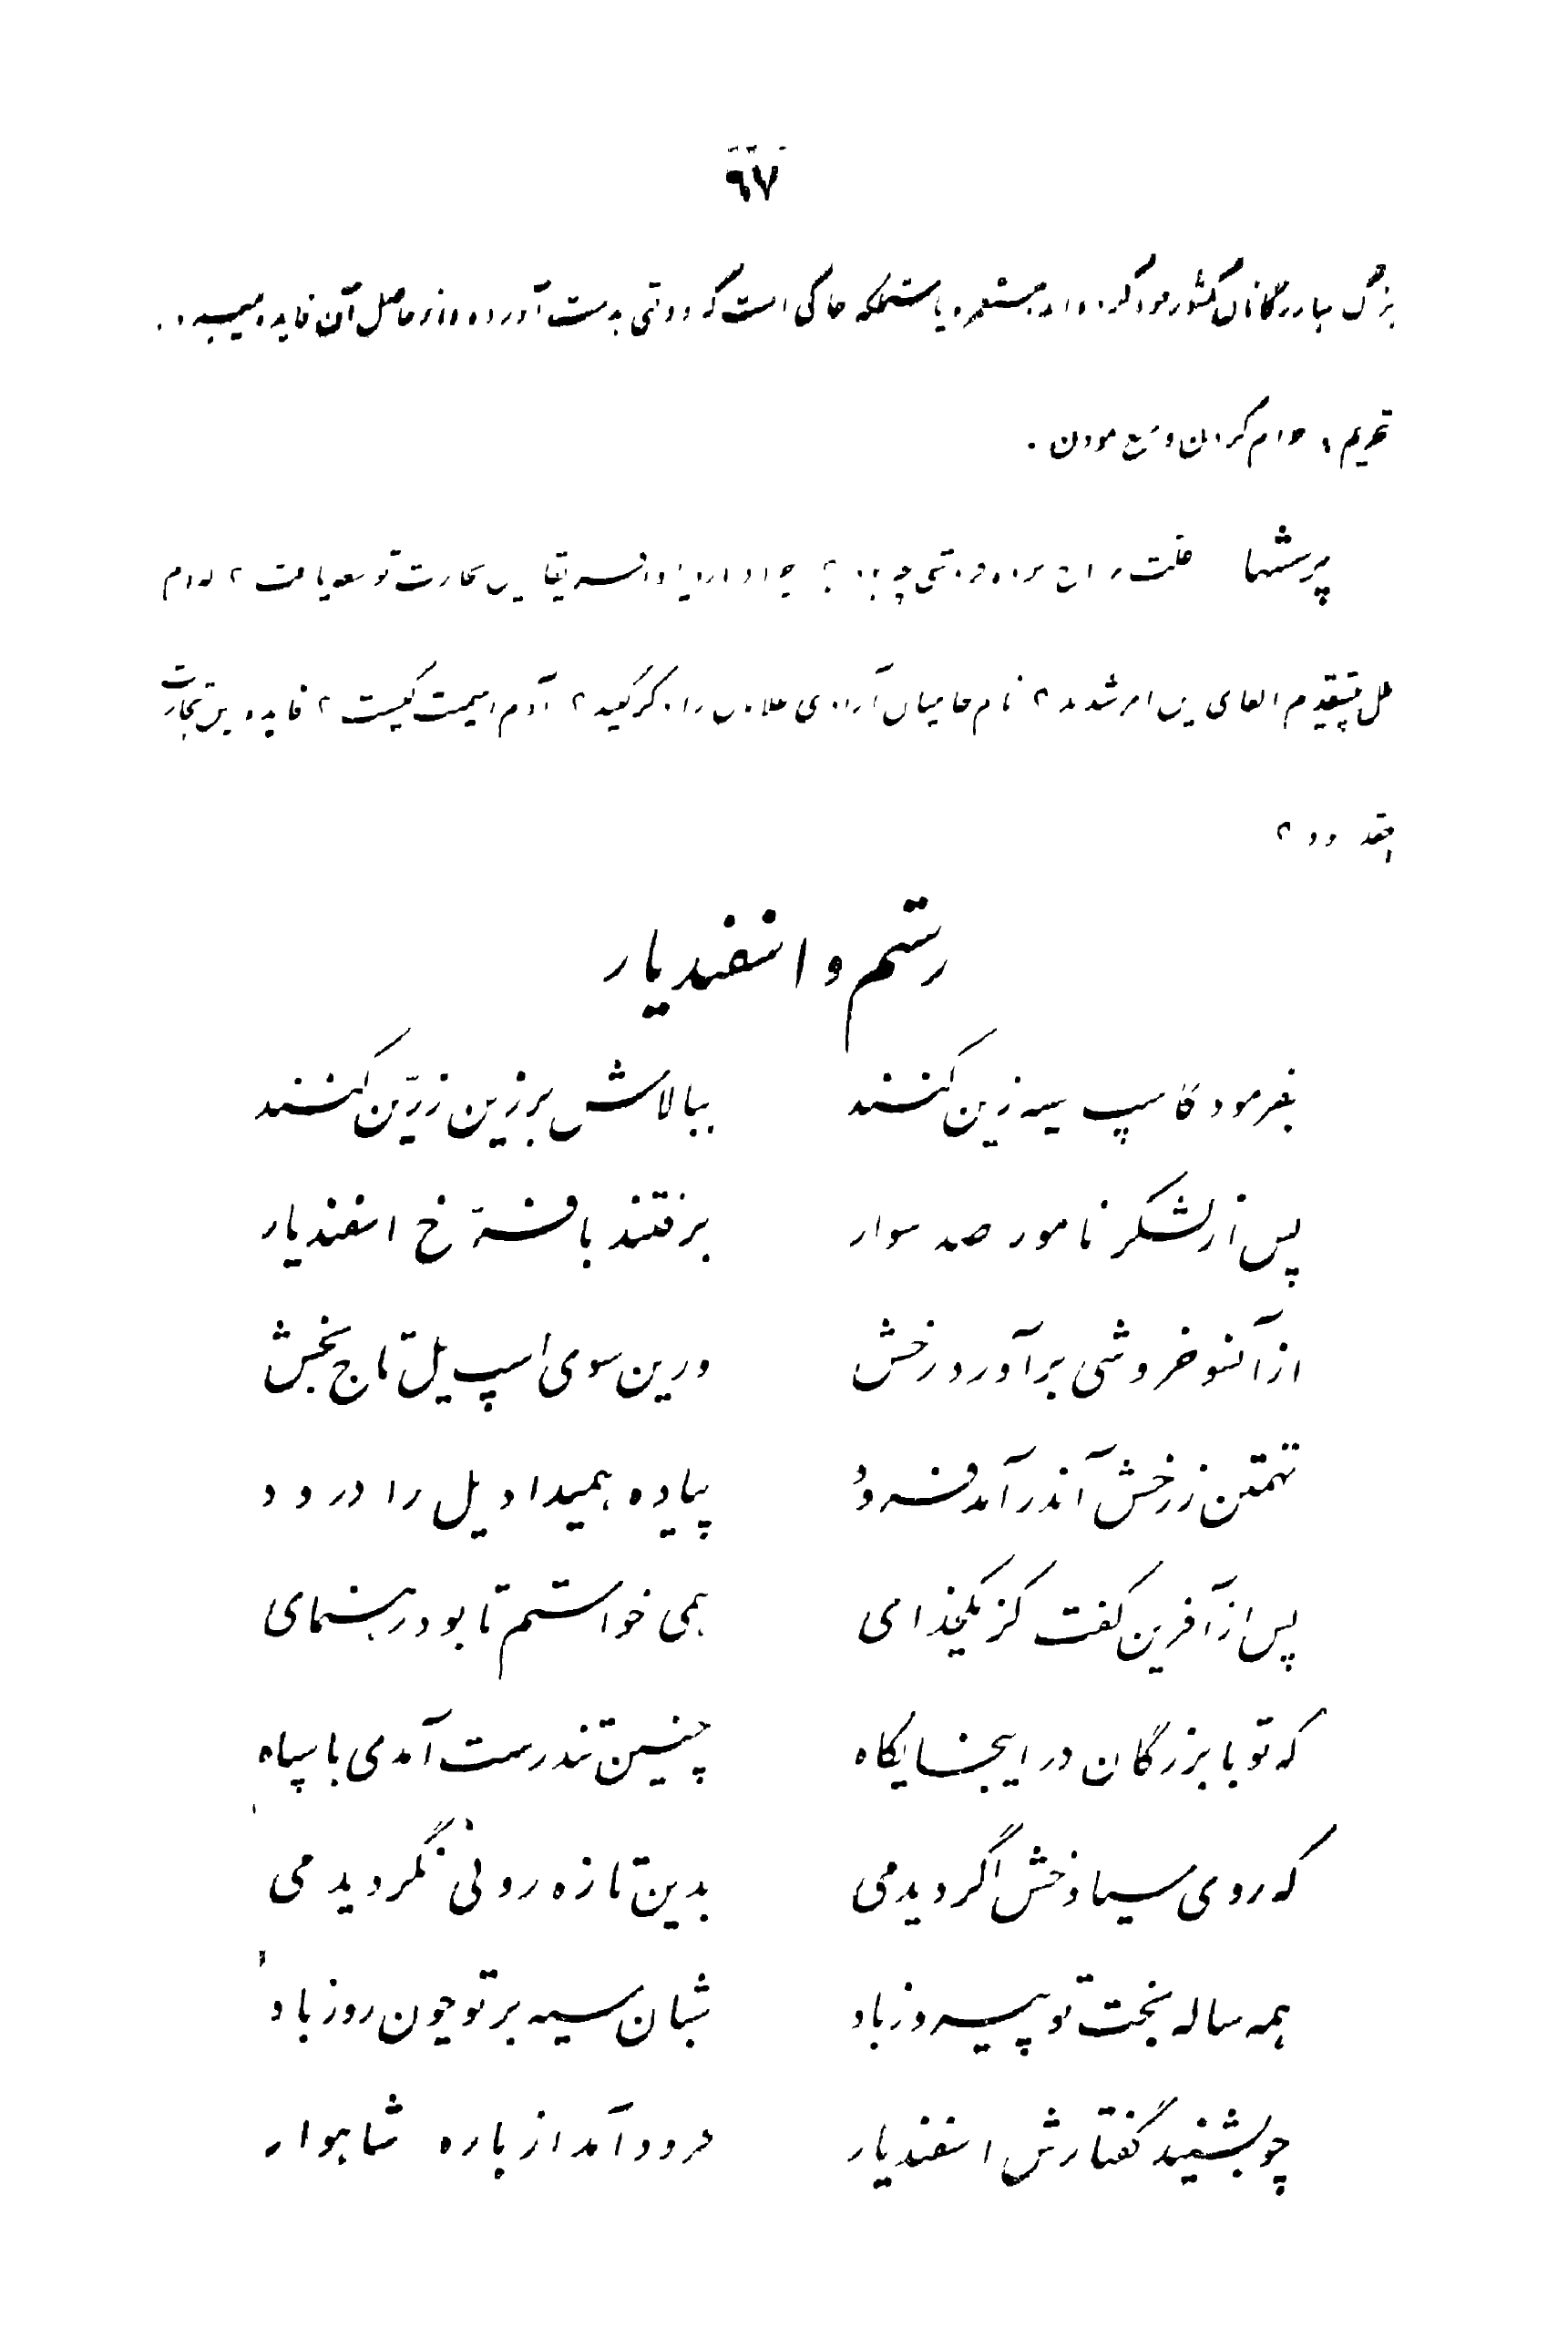 ٦٧
بزرگ بازرگانان کشور خود کرده اند مستعمره یا مستملکه خاکی است که دولتی بدست آورده و از حاصل آن فایده میبرد .
تحریم ، حرام کردن و منع نمودن .
پرسشها علت رواج برده فروشی چه بود ؟ چرا در اروپا و افریقا این تجارت توسعه یافت ؟ کدام
ملل پیشقدم الغای این امر شدند ؟ نام حامیان آزادی غلامان را ذکر کنید ؟ آدم اسمیت کیست ؟ فایده این تجارت
چقدر بود ؟
رستم و اسفندیار
بفرمود کاسپ سیه زین کنند ببالاش بر زین زرّین کنند
پس از لشکر نامور صد سوار برفتند با فرّخ اسفندیار
از آنسو خروشی بر آورد رخش وزین سوی اسپ یل تاج بخش
تهمتن ز رخش اندر آمد فرود پیاده همیداد یل را درود
پس از آفرین گفت کز یکخدای همی خواستم تا بود رهنمای
که تو با بزرگان در اینجایگاه چنین تندرست آمدی با سپاه
که روی سیاوخش اگر دیدمی بدین تازه روئی نگردیدمی
همه ساله بخت تو پیروز باد شبان سیه بر تو چون روز باد
چو بشنید گفتارش اسفندیار فرود آمد از باره شاهوار